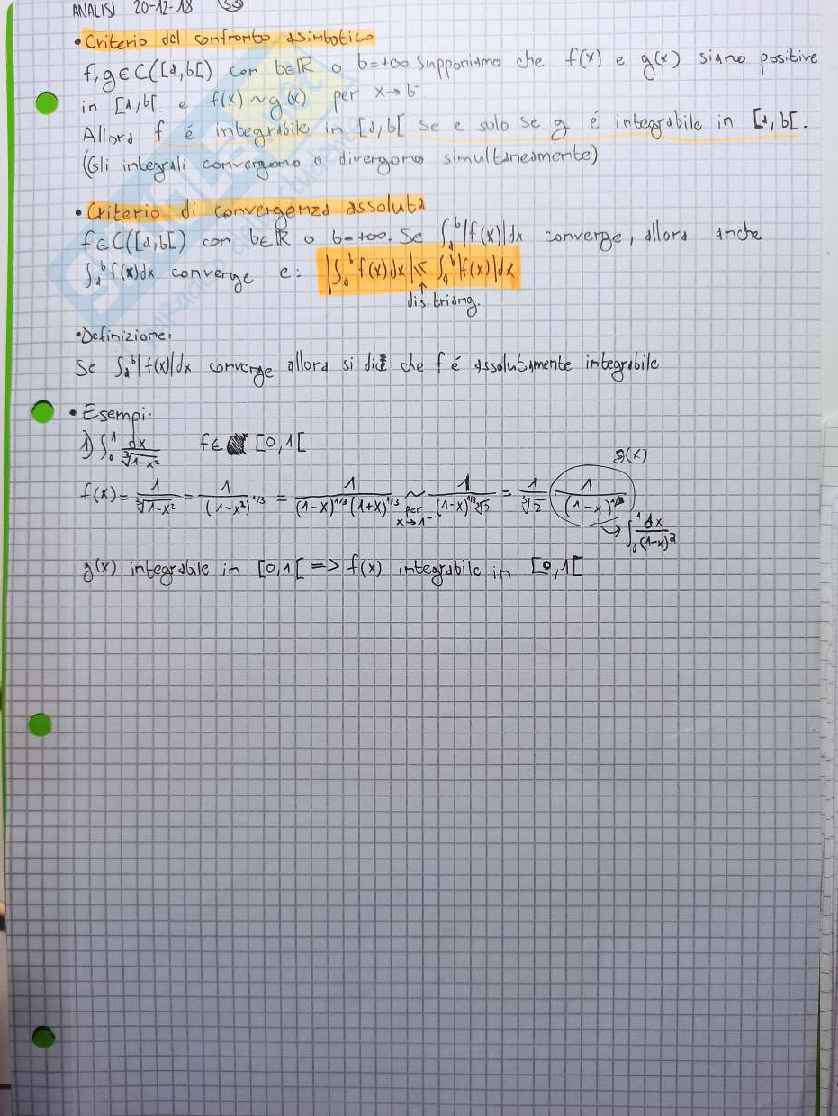 ANALISI 20-12-18 
• Criterio del confronto asintotico
f, g ∈ C([a, b[) con b∈ℝ o b=+∞ Supponiamo che f(x) e g(x) siano positive
in [a, b[ e f(x) ~ g(x) per x→b⁻
Allora f é integrabile in [a, b[ se e solo se g é integrabile in [a, b[.
(Gli integrali convergono o divergono simultaneamente)
• Criterio di convergenza assoluta
f∈C([a, b[) con b∈ℝ o b=+∞. Se ∫ₐᵇ|f(x)|dx converge, allora anche
∫ₐᵇ f(x)dx converge e: |∫ₐᵇ f(x)dx| ≤ ∫ₐᵇ|f(x)|dx
dis triang.
•Definizione:
Se ∫ₐᵇ|f(x)|dx converge allora si dice che f é assolutamente integrabile
• Esempi:
1) ∫₀¹ dx/∛(1-x²) f∈ [0,1[
g(x)
f(x) = 1/∛(1-x²) = 1/(1-x²)^1/3 = 1/((1-x)^1/3 (1+x)^1/3) ~ per x→1⁻ 1/((1-x)^1/3 ∛2) = 1/∛2 1/(1-x)^1/3
→ ∫₀¹ dx/(1-x)ᵃ
g(x) integrabile in [0,1[ => f(x) integrabile in [0,1[